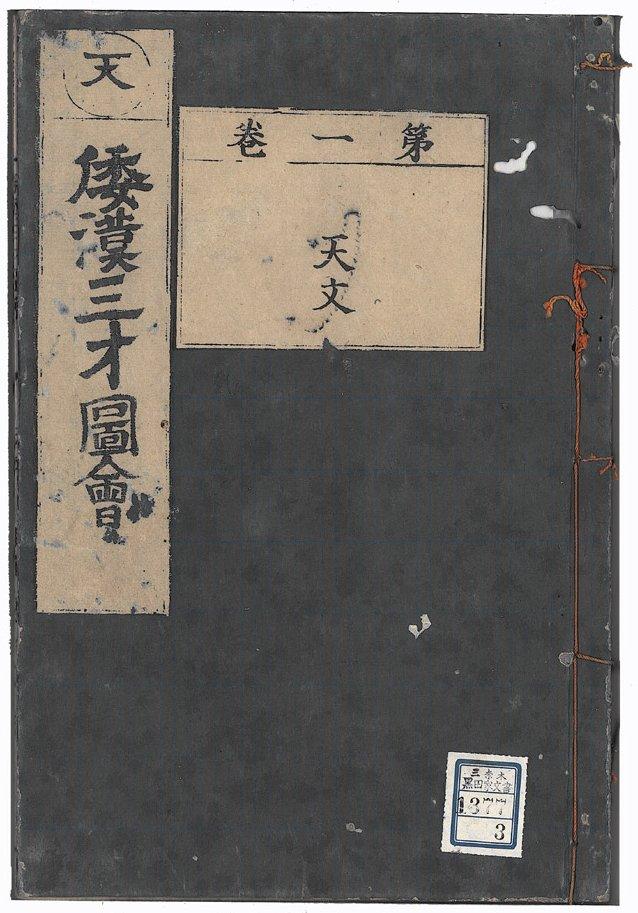 天
倭漢三才圖會
第一巻
天文
三奈木
黒田家文書
1377
3